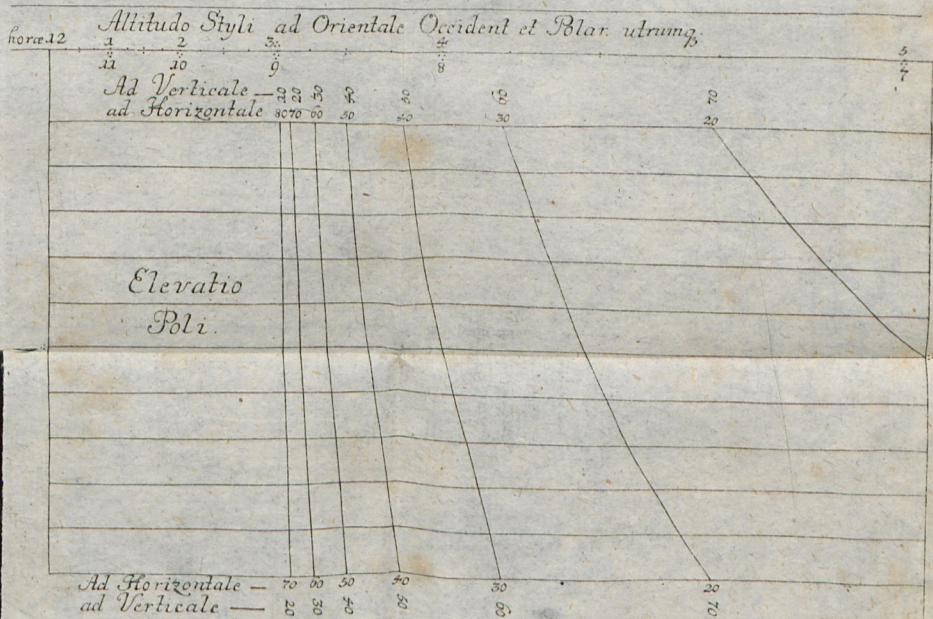 Altitudo Styli ad Orientale Occident et Polar. utrumq.
horæ 12 1 2 3 4 5
11 10 9 8 7
Ad Verticale — 10 20 30 40 50 60 70
ad Horizontale 80 70 60 50 40 30 20
Elevatio
Poli.
Ad Horizontale — 70 60 50 40 30 20
ad Verticale — 20 30 40 50 60 70